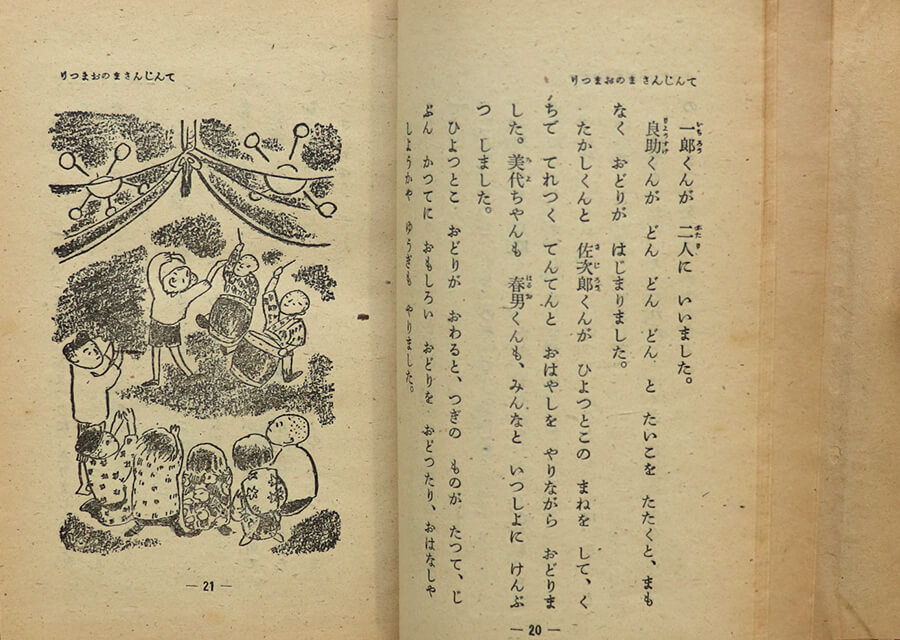 てんじんさまのおまつり
一郎くんが 二人に いいました。
良助くんが どん どん どん と たいこを たたくと、まも
なく おどりが はじまりました。
たかしくんと 佐次郎くんが ひよつとこの まねを して、く
ちで てれつく てんてんと おはやしを やりながら おどりま
した。美代ちやんも 春男くんも、みんなと いつしよに けんぶ
つ しました。
ひよつとこ おどりが おわると、つぎの ものが たつて、じ
ぶん かつてに おもしろい おどりを おどつたり、おはなしや
しようかや ゆうぎも やりました。
— 20 —
てんじんさまのおまつり
— 21 —